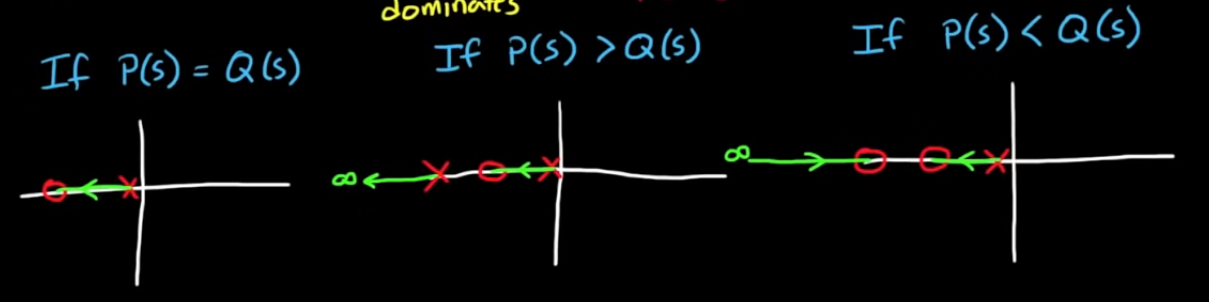 dominates
If P(s) = Q(s)
If P(s) > Q(s)
If P(s) < Q(s)
∞
∞